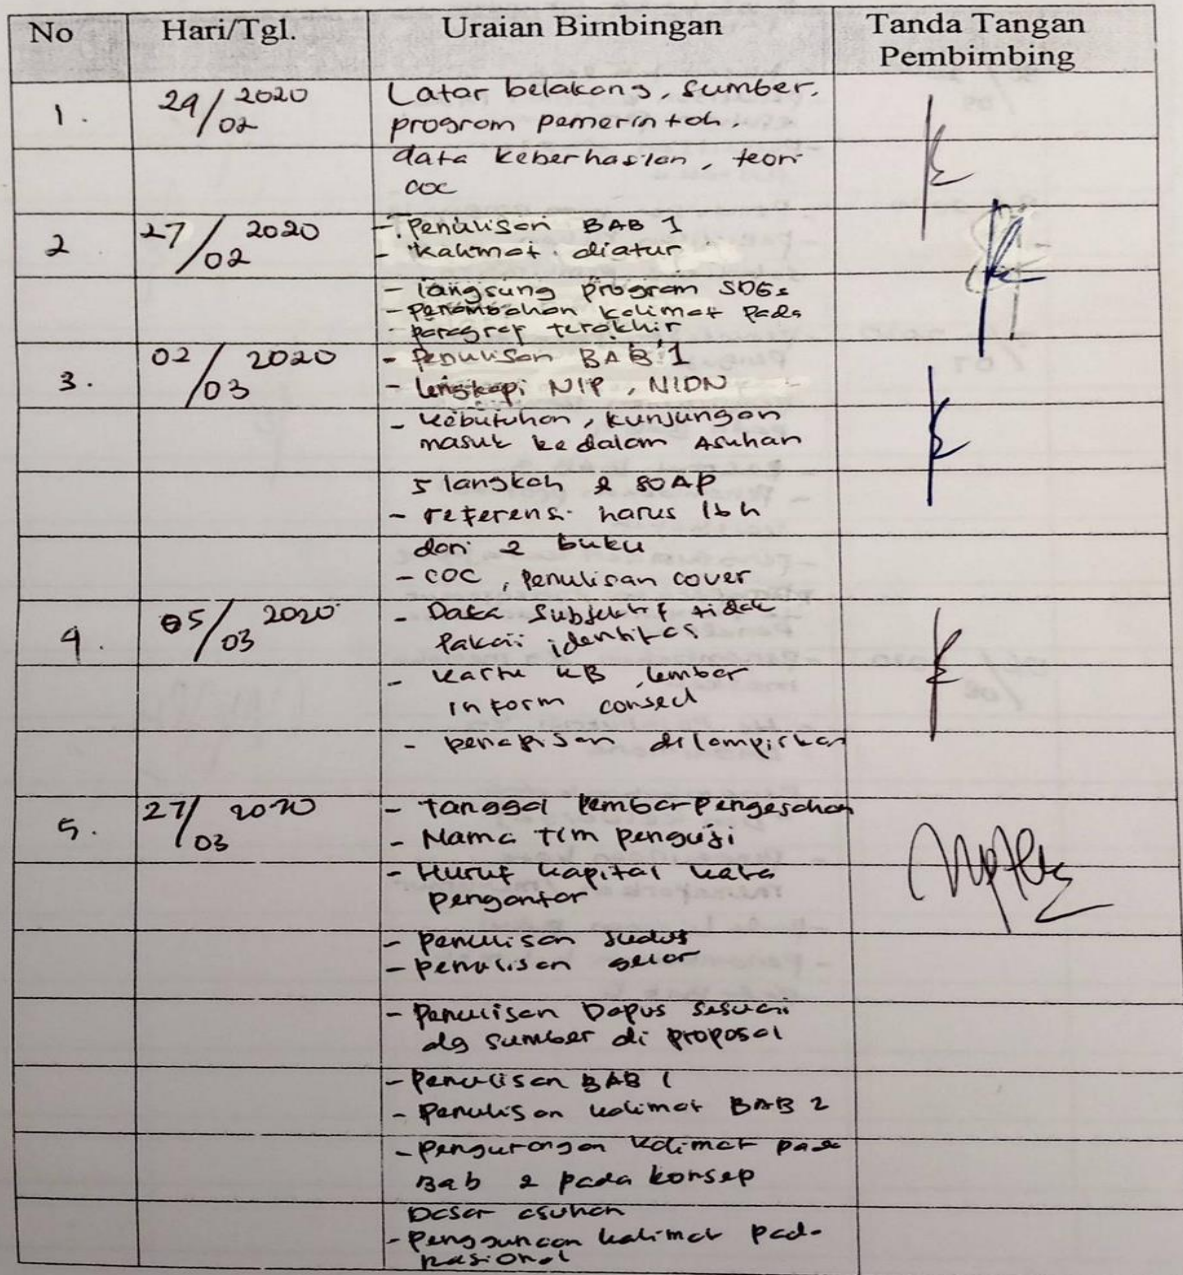 No Hari/Tgl. Uraian Bimbingan Tanda Tangan
Pembimbing
1. 24/02 2020 Latar belakang, sumber,
program pemerintah,
data keberhasilan, teori
COC
2 27/02 2020 - Penulisan BAB 1
- Kalimat diatur
- langsung program SDGs
- Penambahan kalimat pada
paragraf terakhir
3. 02/03 2020 - Penulisan BAB 1
- lengkapi NIP, NIDN
- Kebutuhan, kunjungan
masuk ke dalam Asuhan
5 langkah & SOAP
- referensi harus lbh
dari 2 buku
- COC, Penulisan cover
4. 05/03 2020 - Data Subjektif tidak
Pakai identitas
- Kartu KB, lembar
inform consed
- penapisan dilampirkan
5. 27/03 2020 - Tanggal lembar pengesahan
- Nama tim penguji
- Huruf kapital kata
pengantar
- Penulisan
- penulisan gelar
- Penulisan Dapus sesuai
dg sumber di proposal
- Penulisan BAB 1
- Penulisan kalimat BAB 2
- Pengurangan kalimat pada
Bab 2 pada konsep
Dasar asuhan
- Penggunaan kalimat pada
nasional